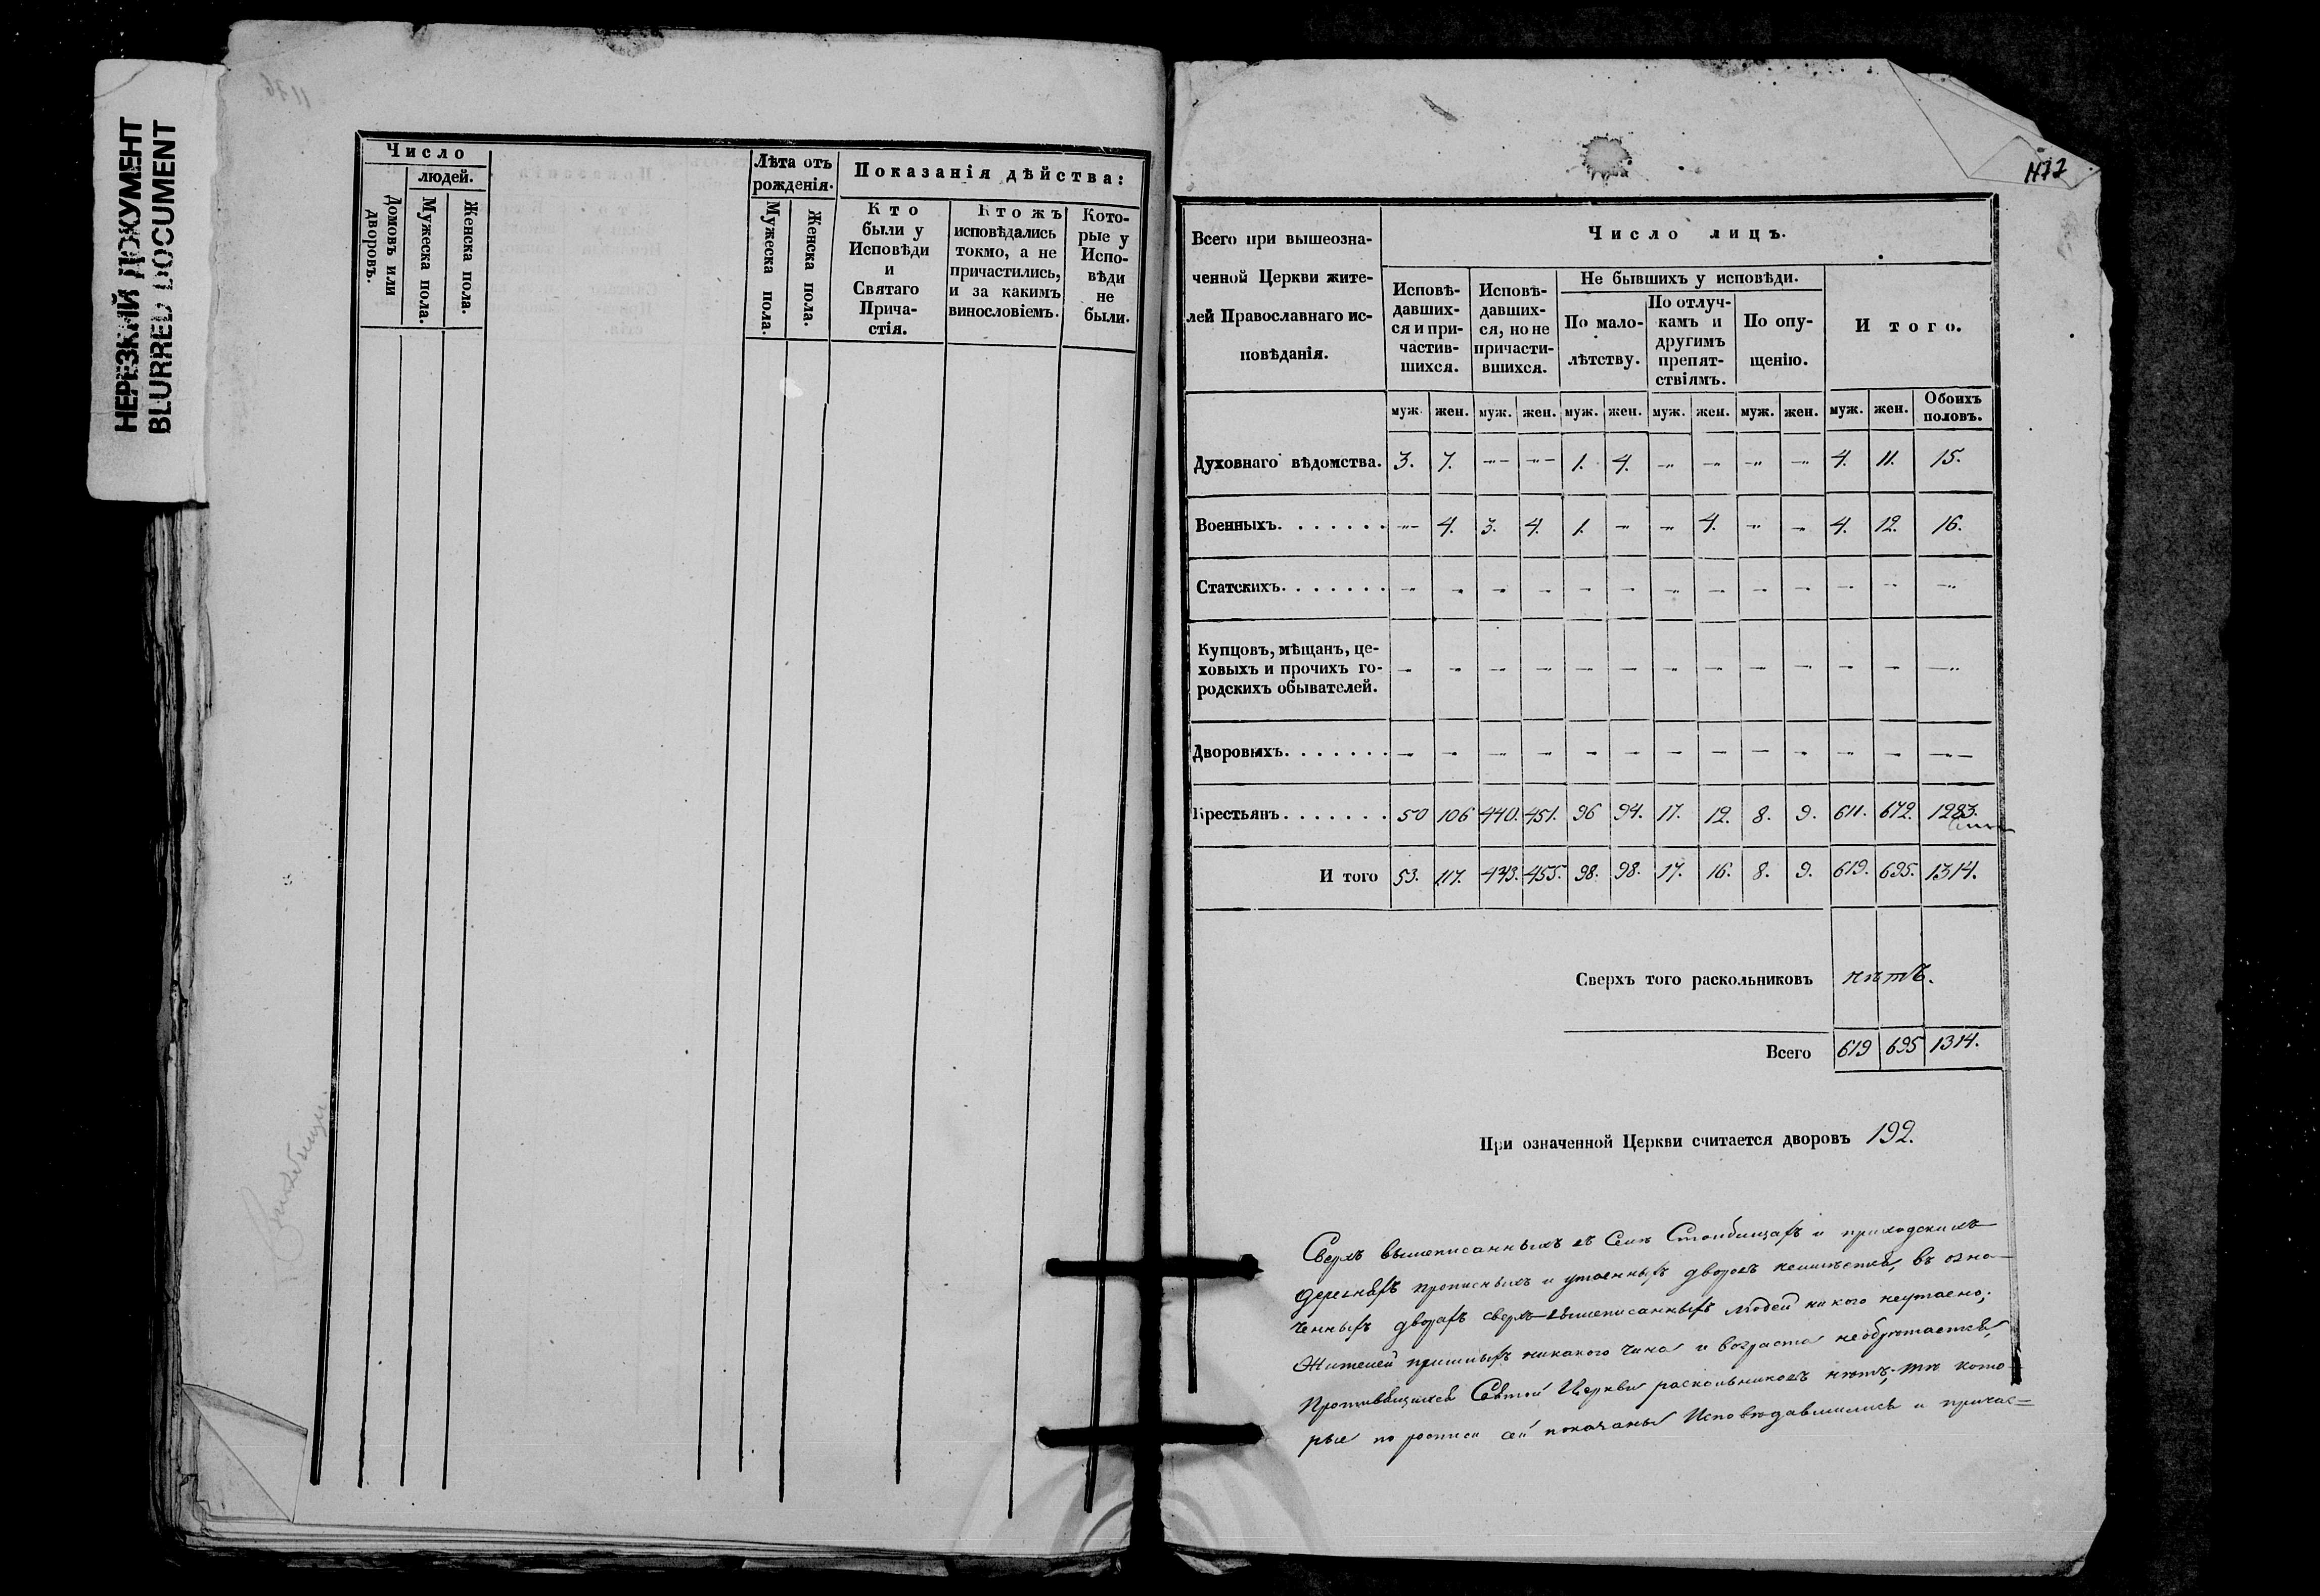 НЕРЕЗКИЙ ДОКУМЕНТ
BLURRED DOCUMENT
Число
людей.
Домовъ или дворовъ.
Мужеска пола.
Женска пола.
Лѣта отъ рожденія.
Мужеска пола.
Женска пола.
Показанія дѣйства:
Кто были у Исповѣди и Святаго Прича-стія.
Ктожъ исповѣдались токмо, а не причастились, и за какимъ винословіемъ.
Кото-рые у Испо-вѣди не были.
1177
Всего при вышеозна-
ченной Церкви жите-
лей Православнаго ис-
повѣданія.
Число лицъ.
Исповѣ-давших-ся и при-частив-шихся.
Исповѣ-давших-ся, но не причасти-вшихся.
Не бывшихъ у исповѣди.
По мало-лѣтству.
По отлуч-камъ и другимъ препят-ствіямъ.
По опу-щенію.
Итого.
муж. жен. муж. жен. муж. жен. муж. жен. муж. жен. муж. жен. Обоихъ половъ.
Духовнаго вѣдомства. 3. 7. -"- -"- 1. 4. -"- -"- -"- -"- 4. 11. 15.
Военныхъ. . . . . . . -"- 4. 3. 4. 1. -"- -"- 4. -"- -"- 4. 12. 16.
Статскихъ. . . . . . . -"- -"- -"- -"- -"- -"- -"- -"- -"- -"- -"- -"- -"-
Купцовъ, мѣщанъ, це-
ховыхъ и прочихъ го-
родскихъ обывателей. -"- -"- -"- -"- -"- -"- -"- -"- -"- -"- -"- -"- -"-
Дворовыхъ. . . . . . . -"- -"- -"- -"- -"- -"- -"- -"- -"- -"- -"- -"- -"-
Крестьянъ. . . . . . . 50 106 440. 451. 96 94. 17. 12. 8. 9. 611. 672. 1283.
И того 53. 117. 443. 455. 98. 98. 17. 16. 8. 9. 619. 695. 1314.
Сверхъ того раскольниковъ нѣтъ.
Всего 619 695 1314.
При означенной Церкви считается дворовъ 192.
Сверхъ вышеписанныхъ въ Селѣ Столбищахъ и приходскихъ
деревняхъ прописныхъ и утаенныхъ дворовъ неимѣется, въ озна-
ченныхъ дворахъ сверхъ вышеписанныхъ людей никого неутаено;
Жителей пришлыхъ никакого чина и возраста необрѣтается,
Противящихся Святой Церкви раскольниковъ нѣтъ; тѣ кото-
рые по росписи сей показаны Исповѣдавшимись и причас=